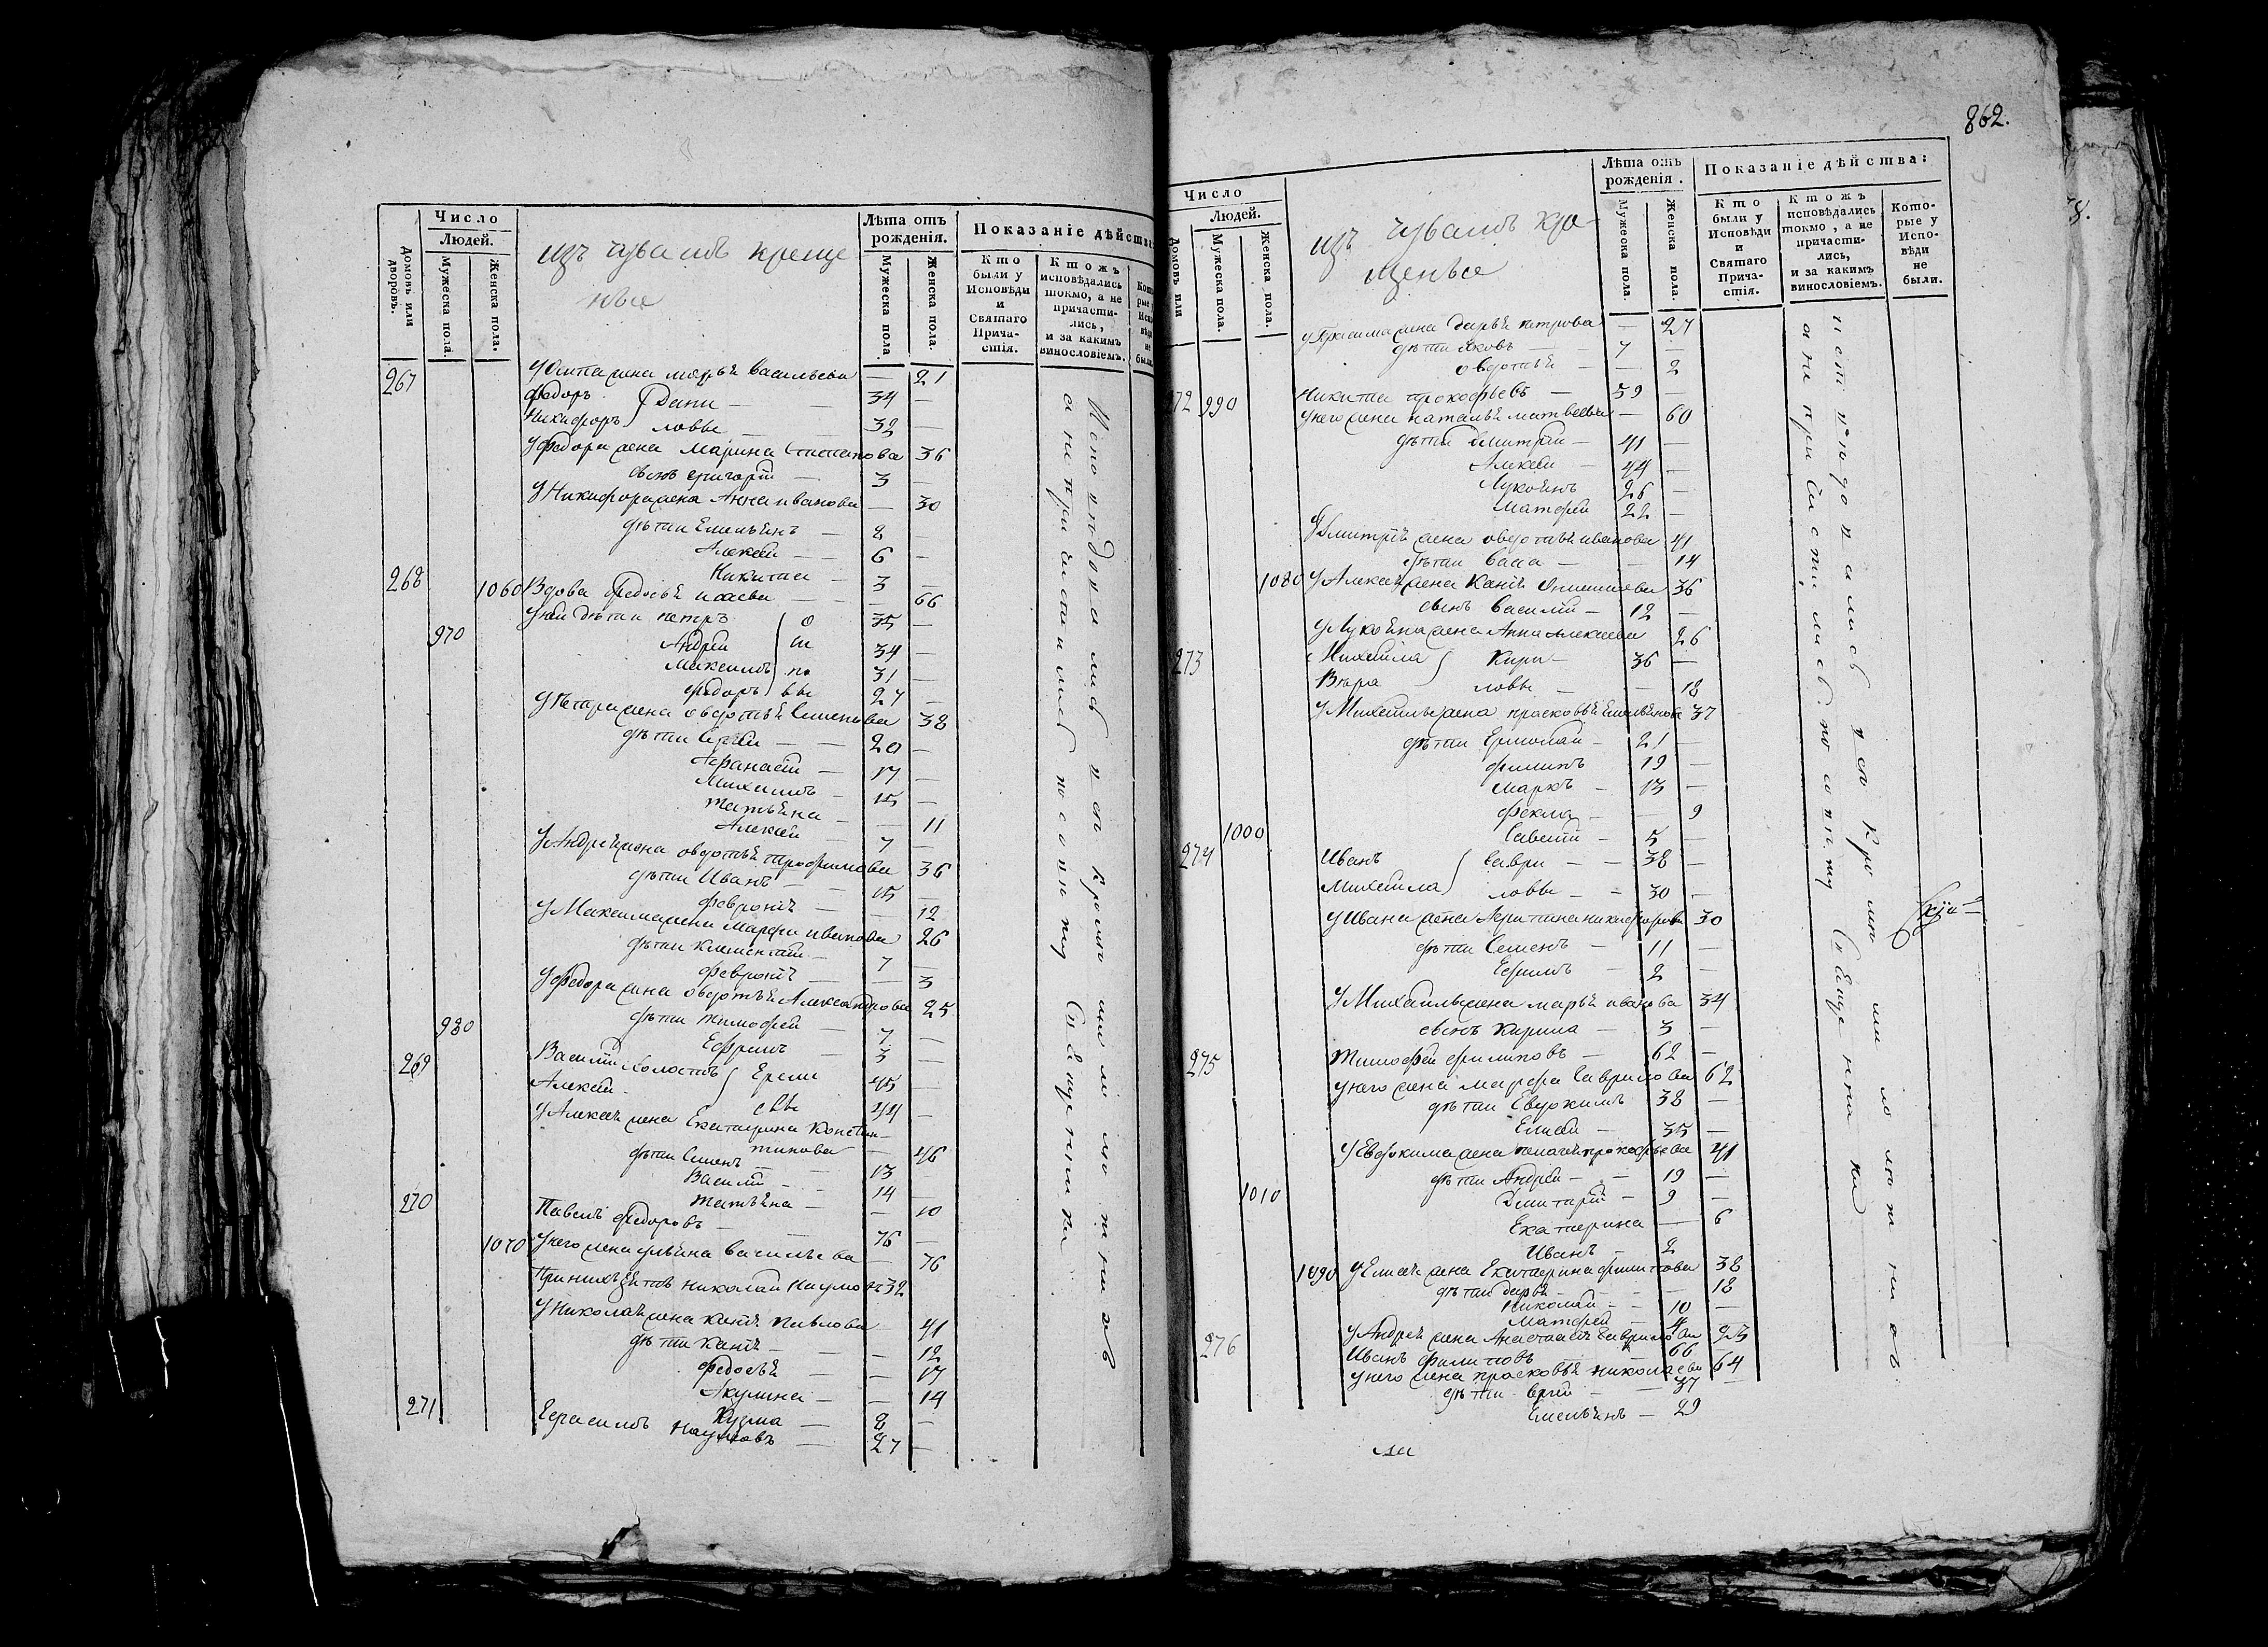 Домовъ или дворовъ.
Число
Людей.
Мужеска пола.
Женска пола.
изъ чувашъ креще
ные
Лѣта отъ
рожденія.
Мужеска пола
Женска пола.
Показаніе дѣйства:
Кто
были у
Исповѣди
и
Святаго
Прича-
стія.
Ктожъ
исповѣдались
токмо, а не
причасти-
лись,
и за какимъ
винословіемъ.
267 У Осипа жена марья Васильева — 21
Федоръ } Дани — 34 —
Никифоръ } ловы — 32 —
У Федора жена Марина степанова 36
сынъ григорій — 3 —
У Никифора жена Анна иванова — 30
дѣти Емельянъ — 8 —
Алексѣй — 6 —
Никита — 3 —
268 1060 Вдова Федосья исаева — 66
У ней дѣти петръ } о 35 —
970 Андрей } си 34 —
Максимъ } по 31 —
федоръ } вы 27 —
У Петра жена овдотья Семенова 38
дѣти Сергѣй — 20 —
Афанасій — 17 —
Михаилъ — 15 —
татьяна — — 11
Алексѣй — 7 —
У Андрея жена овдотья трофимова 36
дѣти Иванъ — 15 —
февронія — — 12
У Максима жена Марфа иванова 26
дѣти климентій — 7 —
февронія — — 3
У федора жена овдотья Александрова 25
дѣти тимофей — 7 —
980 Ефримъ — 3 —
269 Василій холостъ } Ереме 45 —
Алексѣй } евы 44 —
У Алексѣя жена Екатерина Констан-
тинова — 46
дѣти Семенъ — 13 —
Василій — 14 —
татьяна — — 10
270 Павелъ федоровъ — 76 —
1070 У него жена ульяна васильева — 76
При нихъ зять николай наумовъ 32
У Николая жена катя павлова 41
дѣти катя — — 12
федосья — — 17
Акулина — — 14
Кузма — 8 —
271 Герасимъ Наумовъ — 27 —
Исповѣдались
а не причастились по совѣту Священника
862.
Домовъ или
Число
Людей.
Мужеска пола.
Женска пола.
изъ чувашъ кре-
щеные
Лѣта отъ
рожденія.
Мужеска пола.
Женска пола.
Показаніе дѣйства:
Кто
были у
Исповѣди
и
Святаго
Прича-
стія.
Ктожъ
исповѣдались
токмо, а не
причасти-
лись,
и за какимъ
винословіемъ.
Кото-
рые у
Испо-
вѣди
не
были.
У Герасима жена дарья петрова — 27
дѣти яковъ — 7 —
овдотья — — 2
272 990 Никита прокофьевъ — 59 —
У него жена наталья матвеева — 60
дѣти дмитрій — 41 —
Алексѣй — 44 —
Лукоянъ 26 —
Матфей 22 —
У Дмитрія жена овдотья иванова 41
— 14
1080 У Алексѣя жена 36
сынъ Василій — 12 —
У Лукояна жена Анна Алексеева 26
273 Михайла } Кири — 36 —
Вѣра } ловы — — 18
У Михайлы жена прасковья Емельянова 37
дѣти Ермолай — 21 —
филипъ 19 —
маркъ — 13 —
фекла — — 9
1000 Савелій — 5 —
274 Иванъ } Гаври — — 38 —
Михайла } ловы — 30 —
У Ивана жена никифорова 30
дѣти Семенъ — 11 —
Ефимъ — 2 —
У Михайлы жена марья иванова 34
сынъ Кирила — 3 —
275 тимофей филиповъ — 62 —
У него жена марфа Гаврилова 62
дѣти Евдокимъ 38 —
Елисѣй — 35 —
У Евдокима жена пелагея прокофьева 41
дѣти Андрей — 19 —
1010 Дмитарій — 9 —
Екатерина — 6
Иванъ — 2
1090 У Елисѣя жена Екатерина филипова 38
дѣти дарья — — 18
Николай — 10 —
Матфей — 4
У Андрея жена Анастасія Гаврилова 23
276 Иванъ филиповъ — 66 —
У него жена прасковья николаева 64
дѣти Сергѣй — 37 —
Емельянъ — 29
а не причастились по совѣту Священника